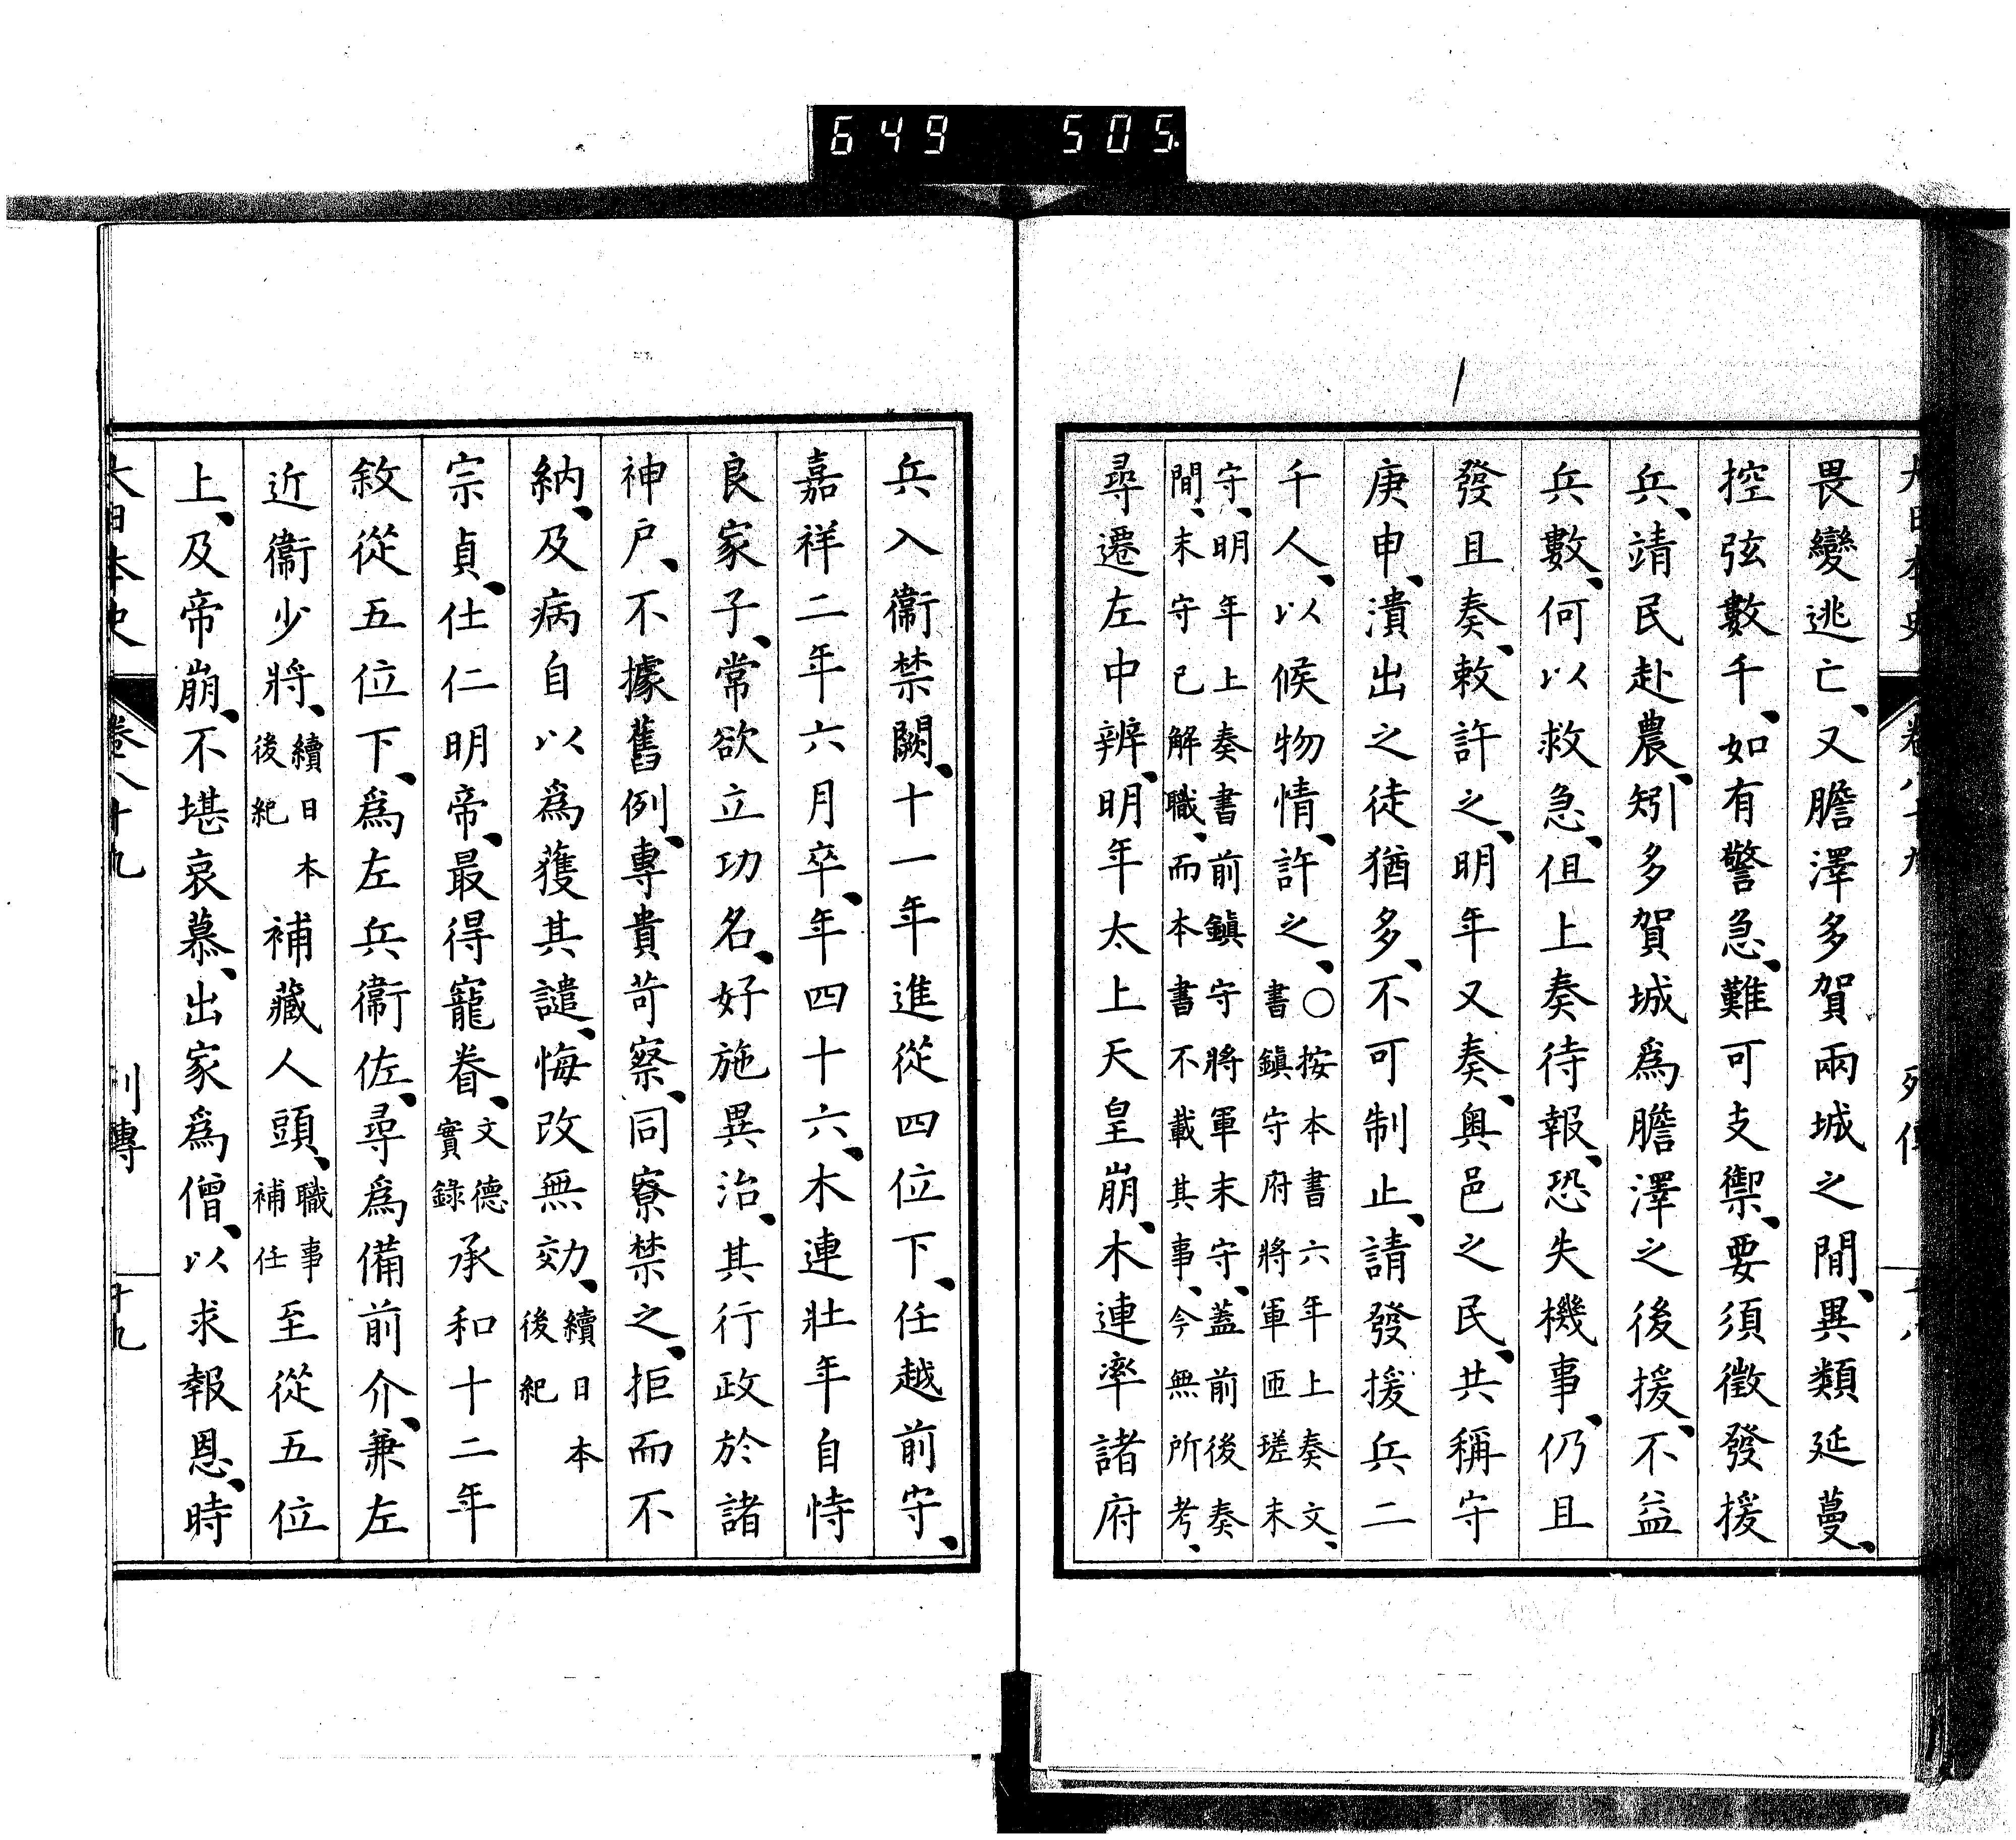 649 505
大日本史 卷八十九 列傳 十八
畏變逃亡、又膽澤多賀兩城之間、異類延蔓、
控弦數千、如有警急、難可支禦、要須徵發援
兵、靖民赴農、矧多賀城爲膽澤之後援、不益
兵數、何以救急、但上奏待報、恐失機事、仍且
發且奏、敕許之、明年又奏、奧邑之民、共稱守
庚申、潰出之徒猶多、不可制止、請發援兵二
千人、以候物情、許之、○按本書六年上奏文、書鎭守府將軍匝瑳末
守、明年上奏書前鎭守將軍末守、蓋前後奏間、末守已解職、而本書不載其事、今無所考、
尋遷左中辨、明年太上天皇崩、木連率諸府
兵入衞禁闕、十一年進從四位下、任越前守、
嘉祥二年六月卒、年四十六、木連壯年自恃
良家子、常欲立功名、好施異治、其行政於諸
神戶、不據舊例、專貴苛察、同寮禁之、拒而不
納、及病自以爲獲其譴、悔改無効、續日本後紀
宗貞、仕仁明帝、最得寵眷、文德實錄承和十二年
敘從五位下、爲左兵衞佐、尋爲備前介、兼左
近衞少將、續日本後紀補藏人頭、職事補任至從五位
上、及帝崩、不堪哀慕、出家爲僧、以求報恩、時
大日本史 卷八十九 列傳 十九